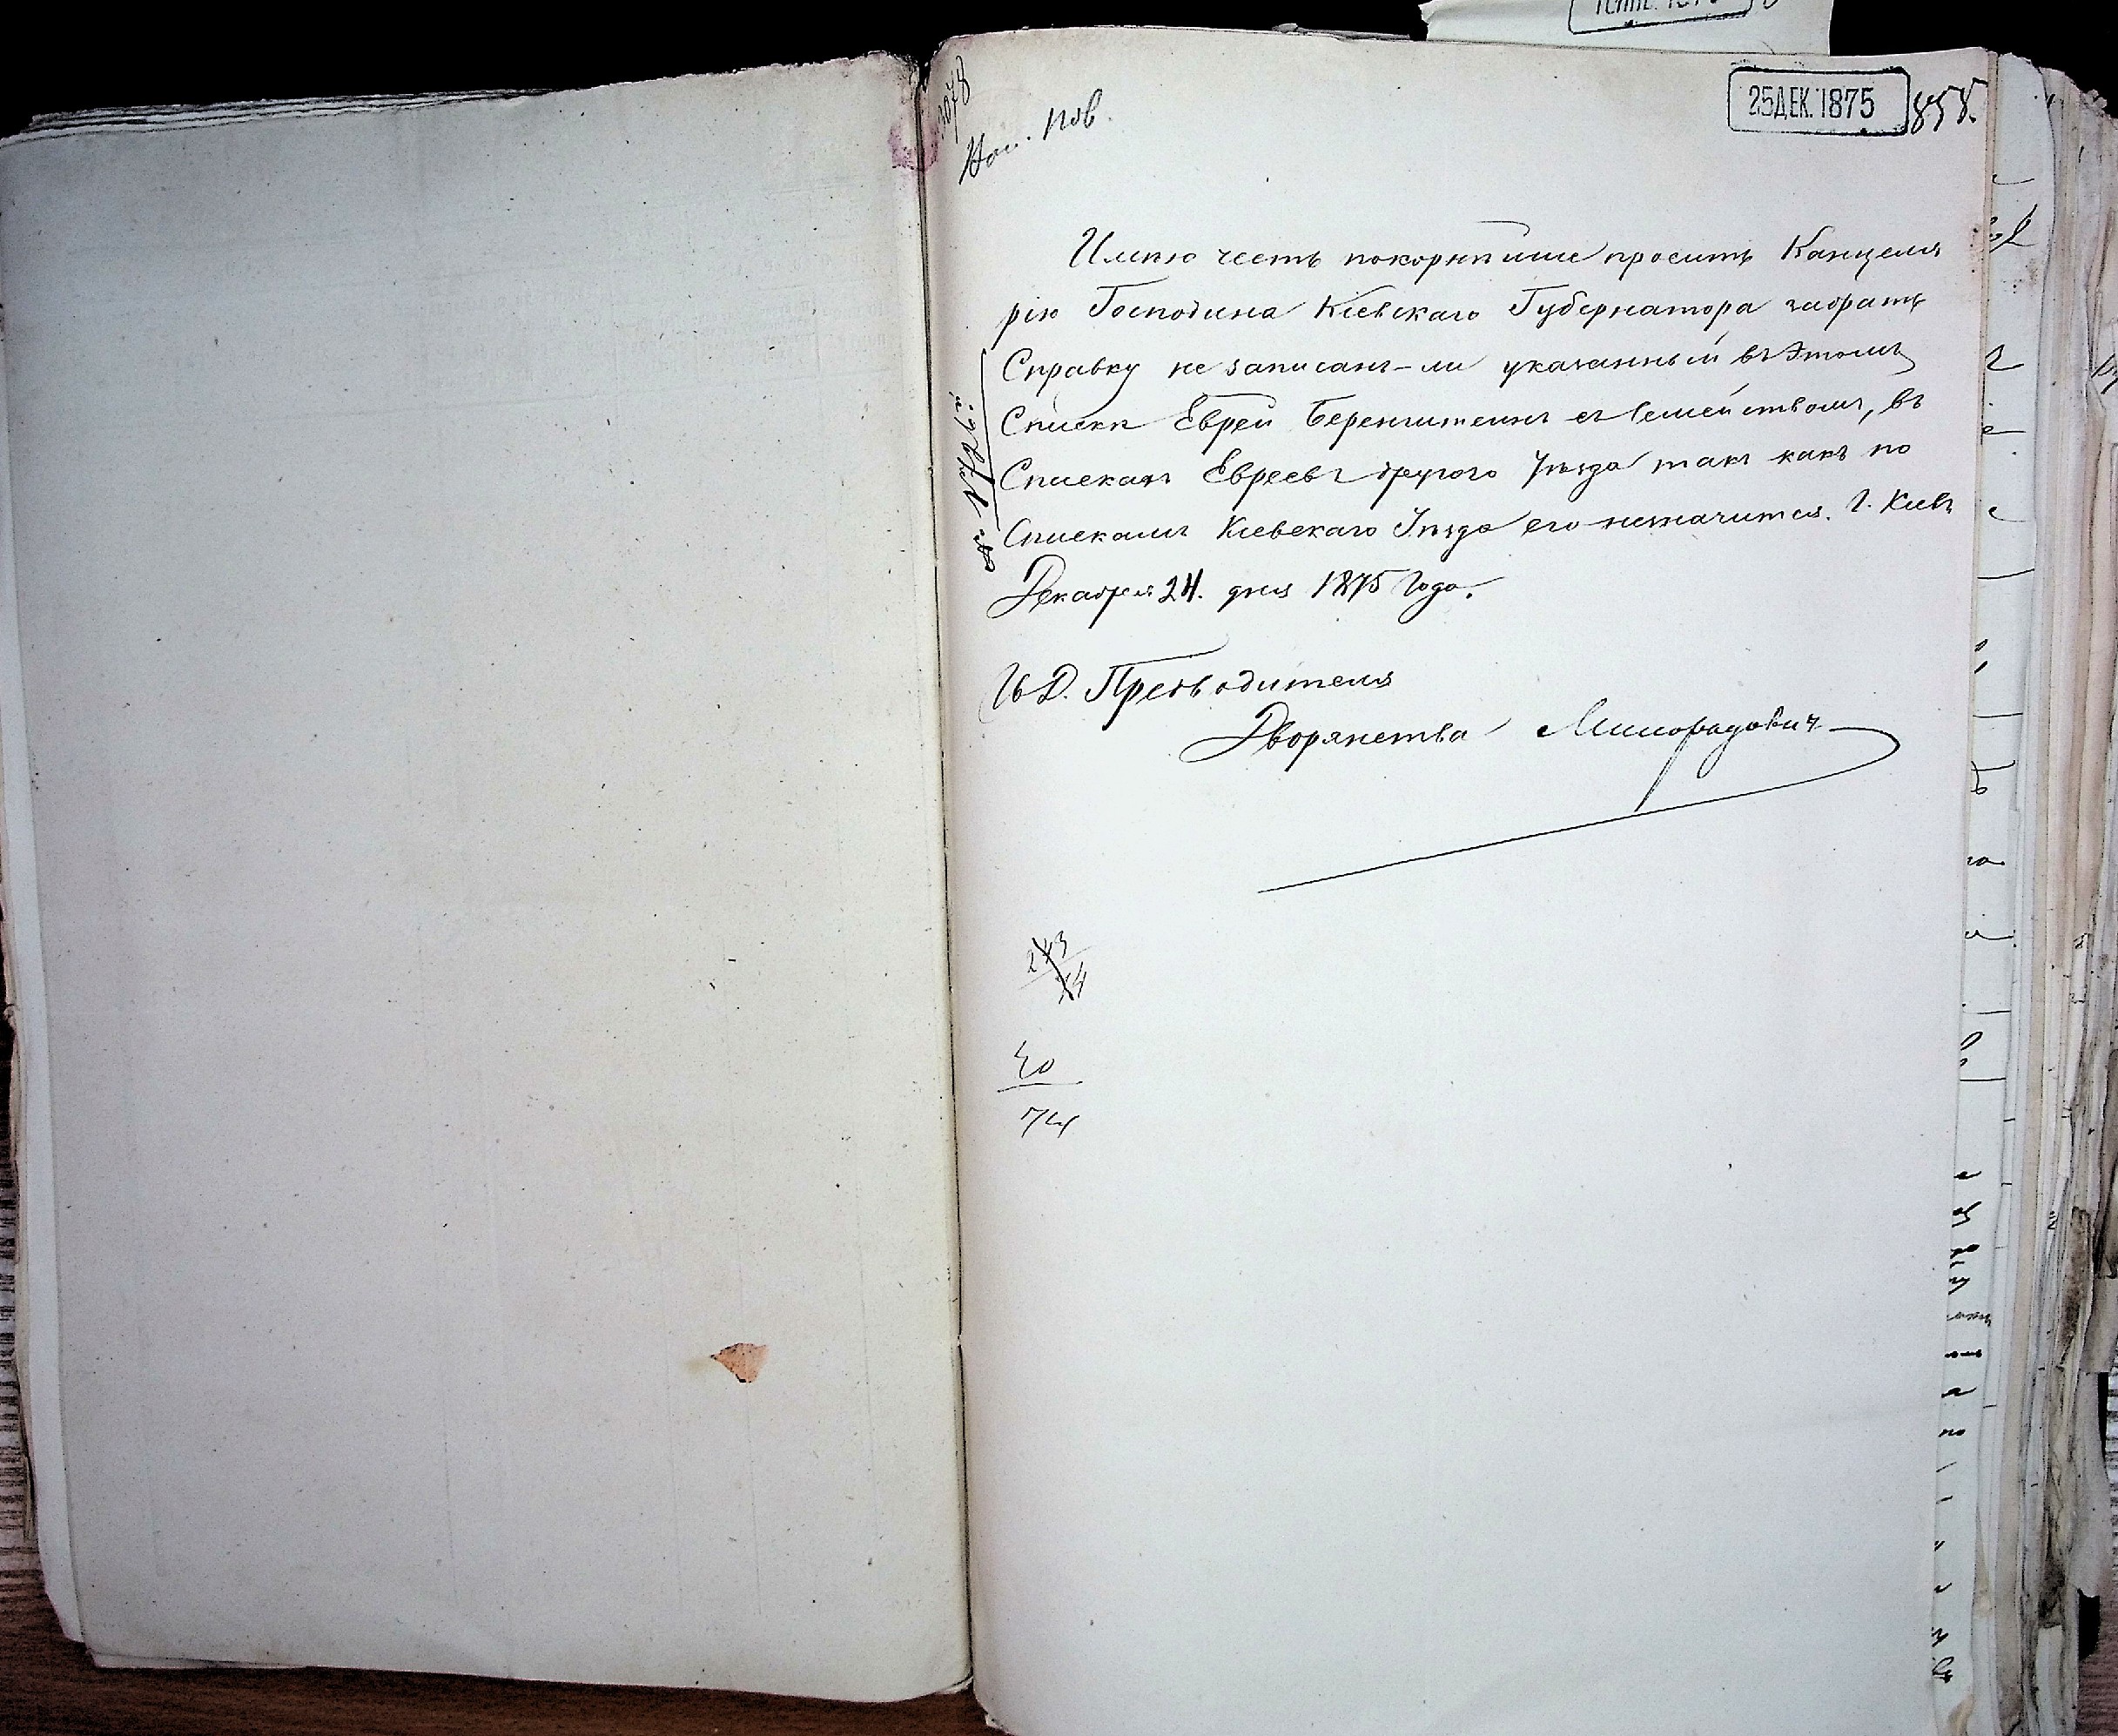 25 ДЕК. 1875
858.
Имѣю честь покорнѣйше просить Канцеля
рію Господина Кіевскаго Губернатора забрать
Справку не записанъ-ли указанный въ Этомъ
Спискѣ Еврей Беренштейнъ съ Семействомъ, въ
Спискахъ Евреевъ другого Уѣзда такъ какъ по
Спискамъ Кіевскаго Уѣзда его незначится. Г. Кіевъ
Декабря 24. дня 1875 Года.
И Д. Предводителя
Дворянства Милорадович
40
74